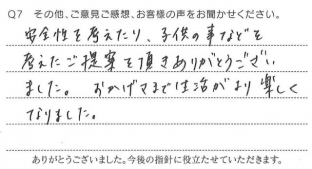 Q7 その他、ご意見ご感想、お客様の声をお聞かせください。
安全性を考えたり、子供の事などを
考えたご提案を頂きありがとうござい
ました。おかげさまで生活がより楽しく
なりました。
ありがとうございました。今後の指針に役立たせていただきます。